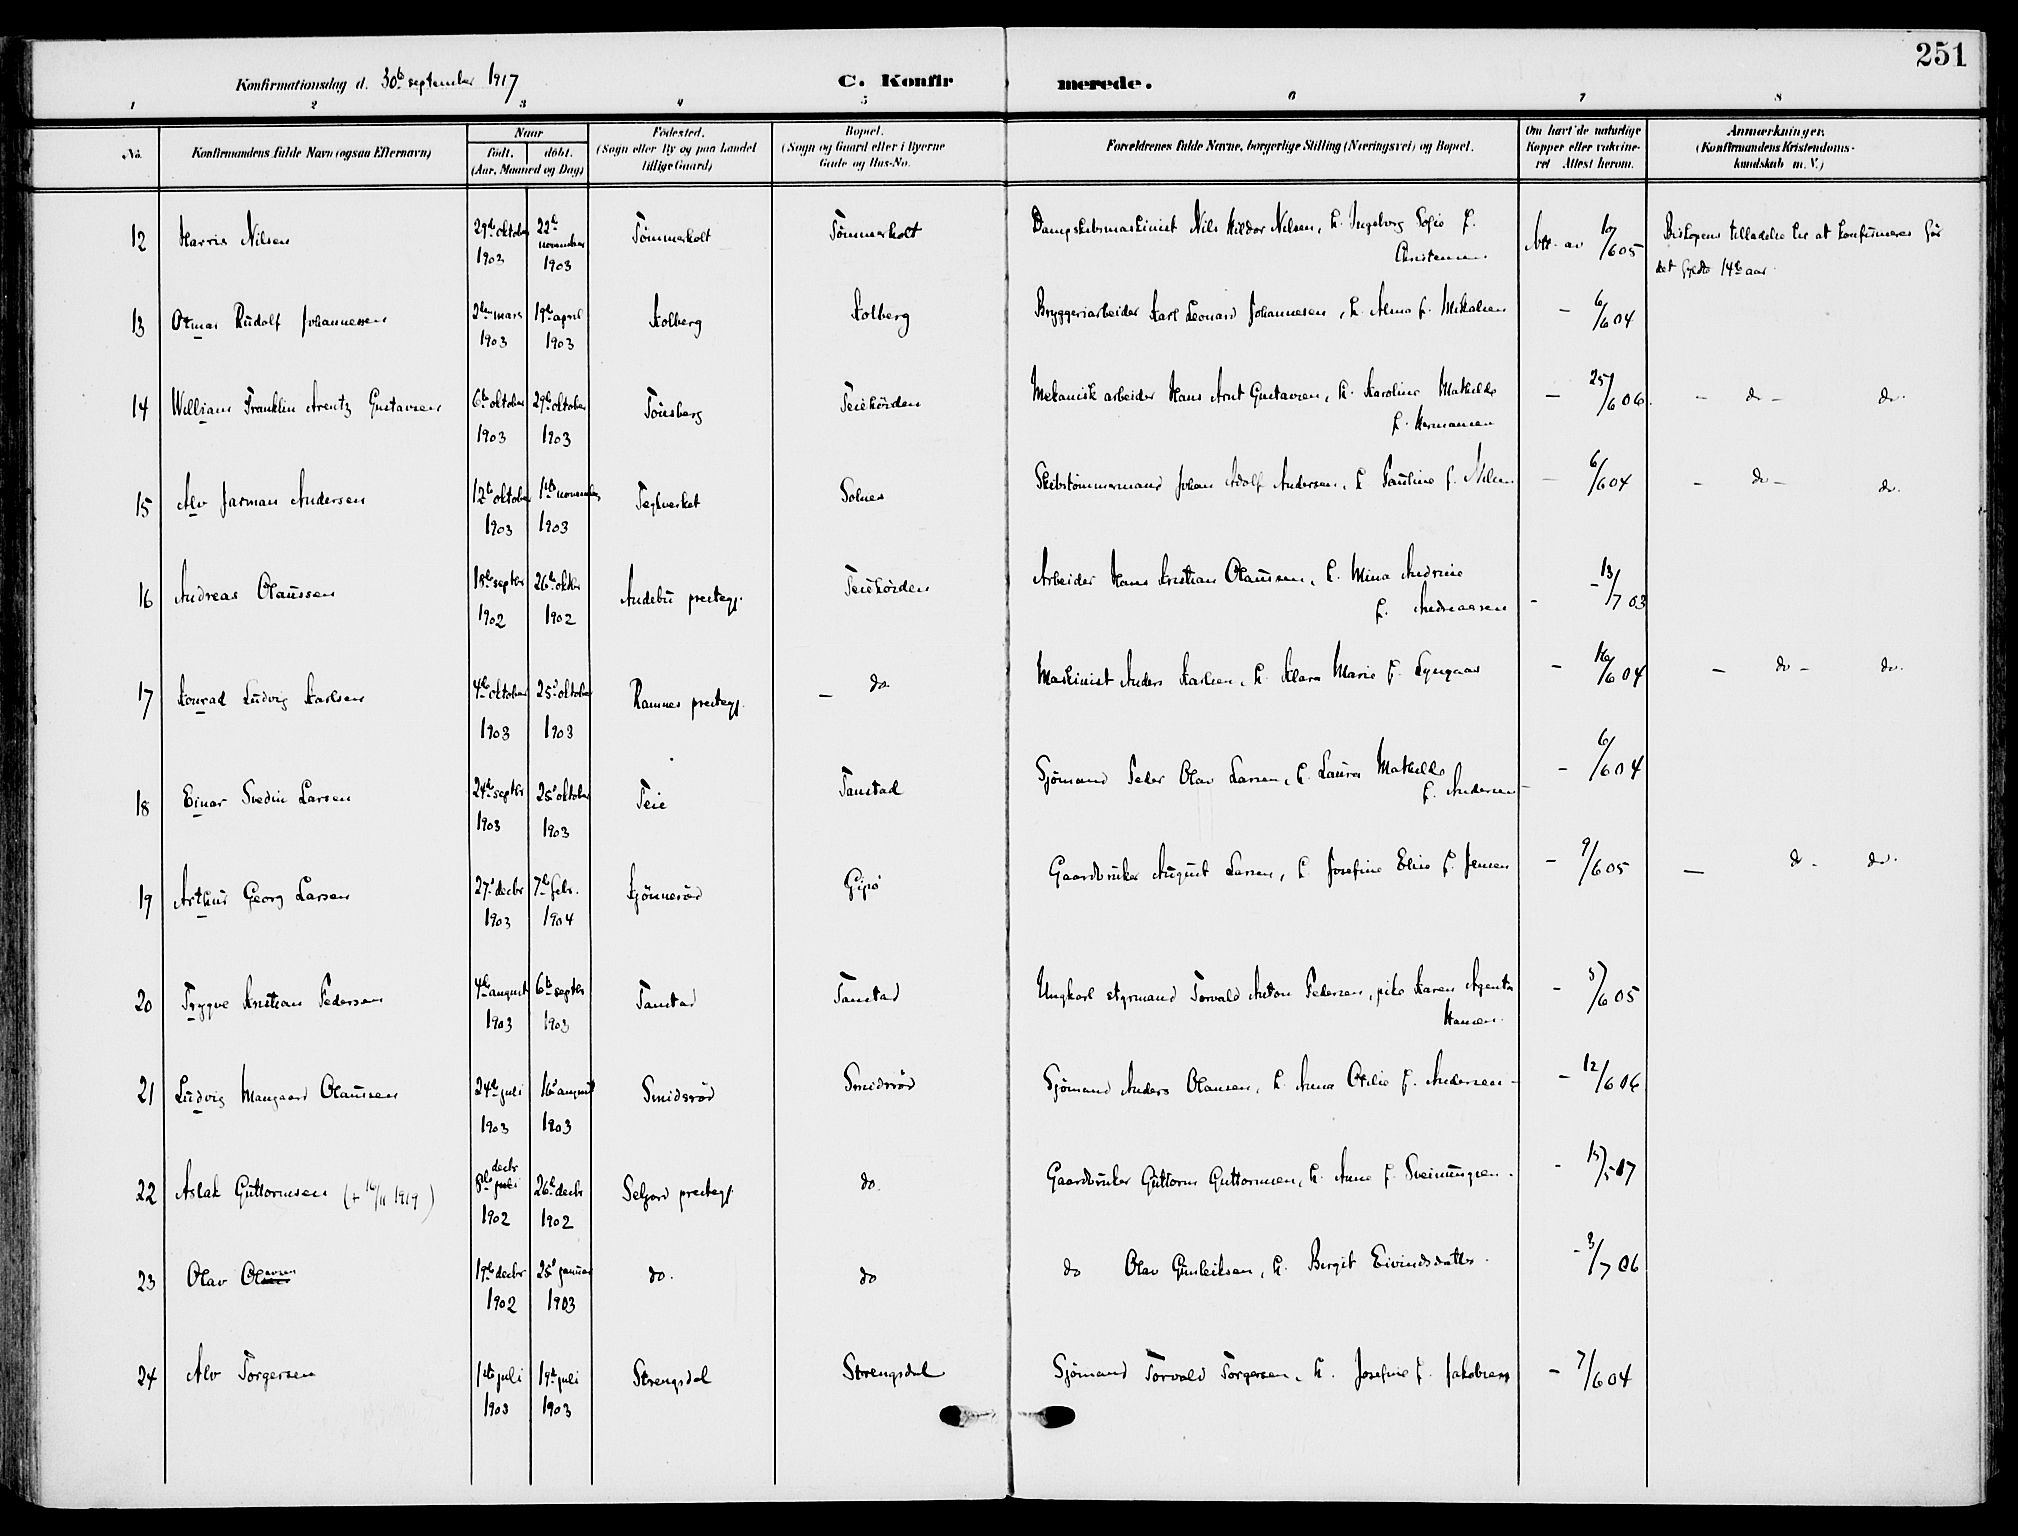 251
Konfirmationsdag d. 30te september 1917
C. Konfirmerede.
1 2 3 4 5 6 7 8
No. Konfirmandens fulde Navn (ogsaa Efternavn) Naar født. døbt. (Aar, Maaned og Dag) Fødested. (Sogn eller By og paa Landet tillige Gaard) Bopæl. (Sogn og Gaard eller i Byerne Gade og Hus-No. Forældrenes fulde Navne, borgerlige Stilling (Næringsvei) og Bopæl. Om havt de naturlige Kopper eller vakcineret Attest herom. Anmærkninger. (Konfirmandens Kristendomskundskab m. V.)
12 Harris Nilsen 29de oktober 1903 22de november 1903 Tømmerholt Tømmerholt Dampskibsmaskinist Nils Hildor Nilsen, h. Ingeborg Sofie f. Christensen Att. av 6/6 05 Biskopens tilladelse til at konfirmeres før det fyldte 14de aar.
13 Otmar Rudolf Johannessen 2den mars 1903 19de april 1903 Kolberg Kolberg Bryggeriarbeider Karl Leonard Johannesen, h. Alma f. Mikalsen - 6/6 04
14 William Franklin Arentz Gustavsen 6te oktober 1903 29de oktober 1903 Tønsberg Teiehøiden Mekanisk arbeider Hans Arnt Gustavsen, h. Karoline Mathilde f. Hermansen - 25/6 06 - do - do.
15 Alv Jarman Andersen 12te oktober 1903 1ste november 1903 Teglverket Solnes Skibstømmermand Johan Adolf Andersen, h Pauline f. Nilsen - 6/6 04 - do - do.
16 Andreas Olaussen 18de septbr 1902 26de oktbr 1902 Andebu prestegj. Teiehøiden Arbeider Hans Kristian Olaussen, h. Mina Andrine f. Andreassen - 13/7 03
17 Konrad Ludvig Karlsen 4de oktober 1903 25d oktober 1903 Ramnes prestegj. - do Maskinist Anders Karlsen, h. Klara Marie f. Lyngaas - 16/6 04 - do - do.
18 Einar Svedin Larsen 24de septbr 1903 25d oktober 1903 Teie Tanstad Sjømand Peder Olav Larsen, h. Laura Mathilde f. Andersen - 6/6 04
19 Arthur Georg Larsen 27d decbr 1903 7de febr. 1904 Kjønnerød Gipø Gaardbruker August Larsen, h Josefine Elise f. Jensen - 9/6 05 - do - do.
20 Trygve Kristian Pedersen 4de august 1903 6te septbr 1903 Tanstad Tanstad Ungkarl styrmand Torvald Anton Pedersen, pike Karen Agente Hansen. - 5/6 05
21 Ludvig Mangaard Olaussen 24de juli 1903 16d august 1903 Smidsrød Smidsrød Sjømand Anders Olaussen, h. Anna Otilie f. Andersen - - 12/6 06
22 Aslak Guttormsen (+ 16/11 1919) 8de juli decbr 1902 26de decbr 1902 Seljord prestegj. do. Gaardbruker Guttorm Guttormsen, h. Anne f. Sveinungsen. - 15/5 07
23 Olav Olavsen 19de decbr 1902 25d januar 1903 do. do do Olav Gunleiksen, h. Bergit Eivindsdatter. - 3/7 06
24 Alv Torgersen 1ste juli 1903 19de juli 1903 Strengsdal Strengsdal Sjømand Torvald Torgersen, h. Josefine f. Jakobsen - 7/6 04